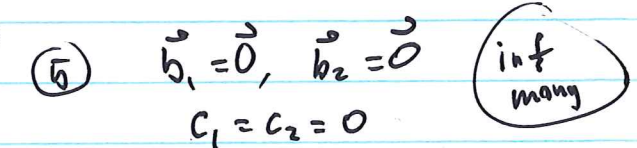 ⑤ b⃗₁ = 0⃗, b⃗₂ = 0⃗ inf many
c₁ = c₂ = 0